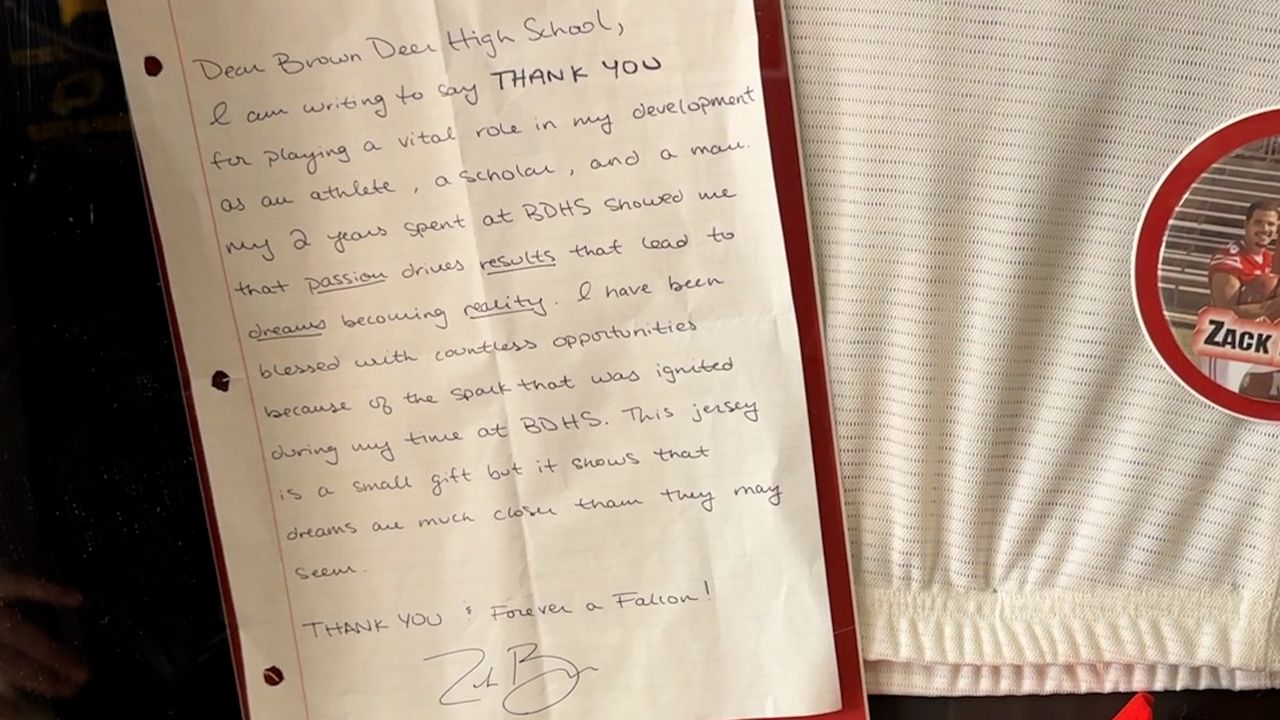 Dear Brown Deer High School,
I am writing to say THANK YOU
for playing a vital role in my development
as an athlete, a scholar, and a man.
my 2 years spent at BDHS showed me
that passion drives results that lead to
dreams becoming reality. I have been
blessed with countless opportunities
because of the spark that was ignited
during my time at BDHS. This jersey
is a small gift but it shows that
dreams are much closer than they may
seem.
THANK YOU & Forever a Falcon!
ZACK